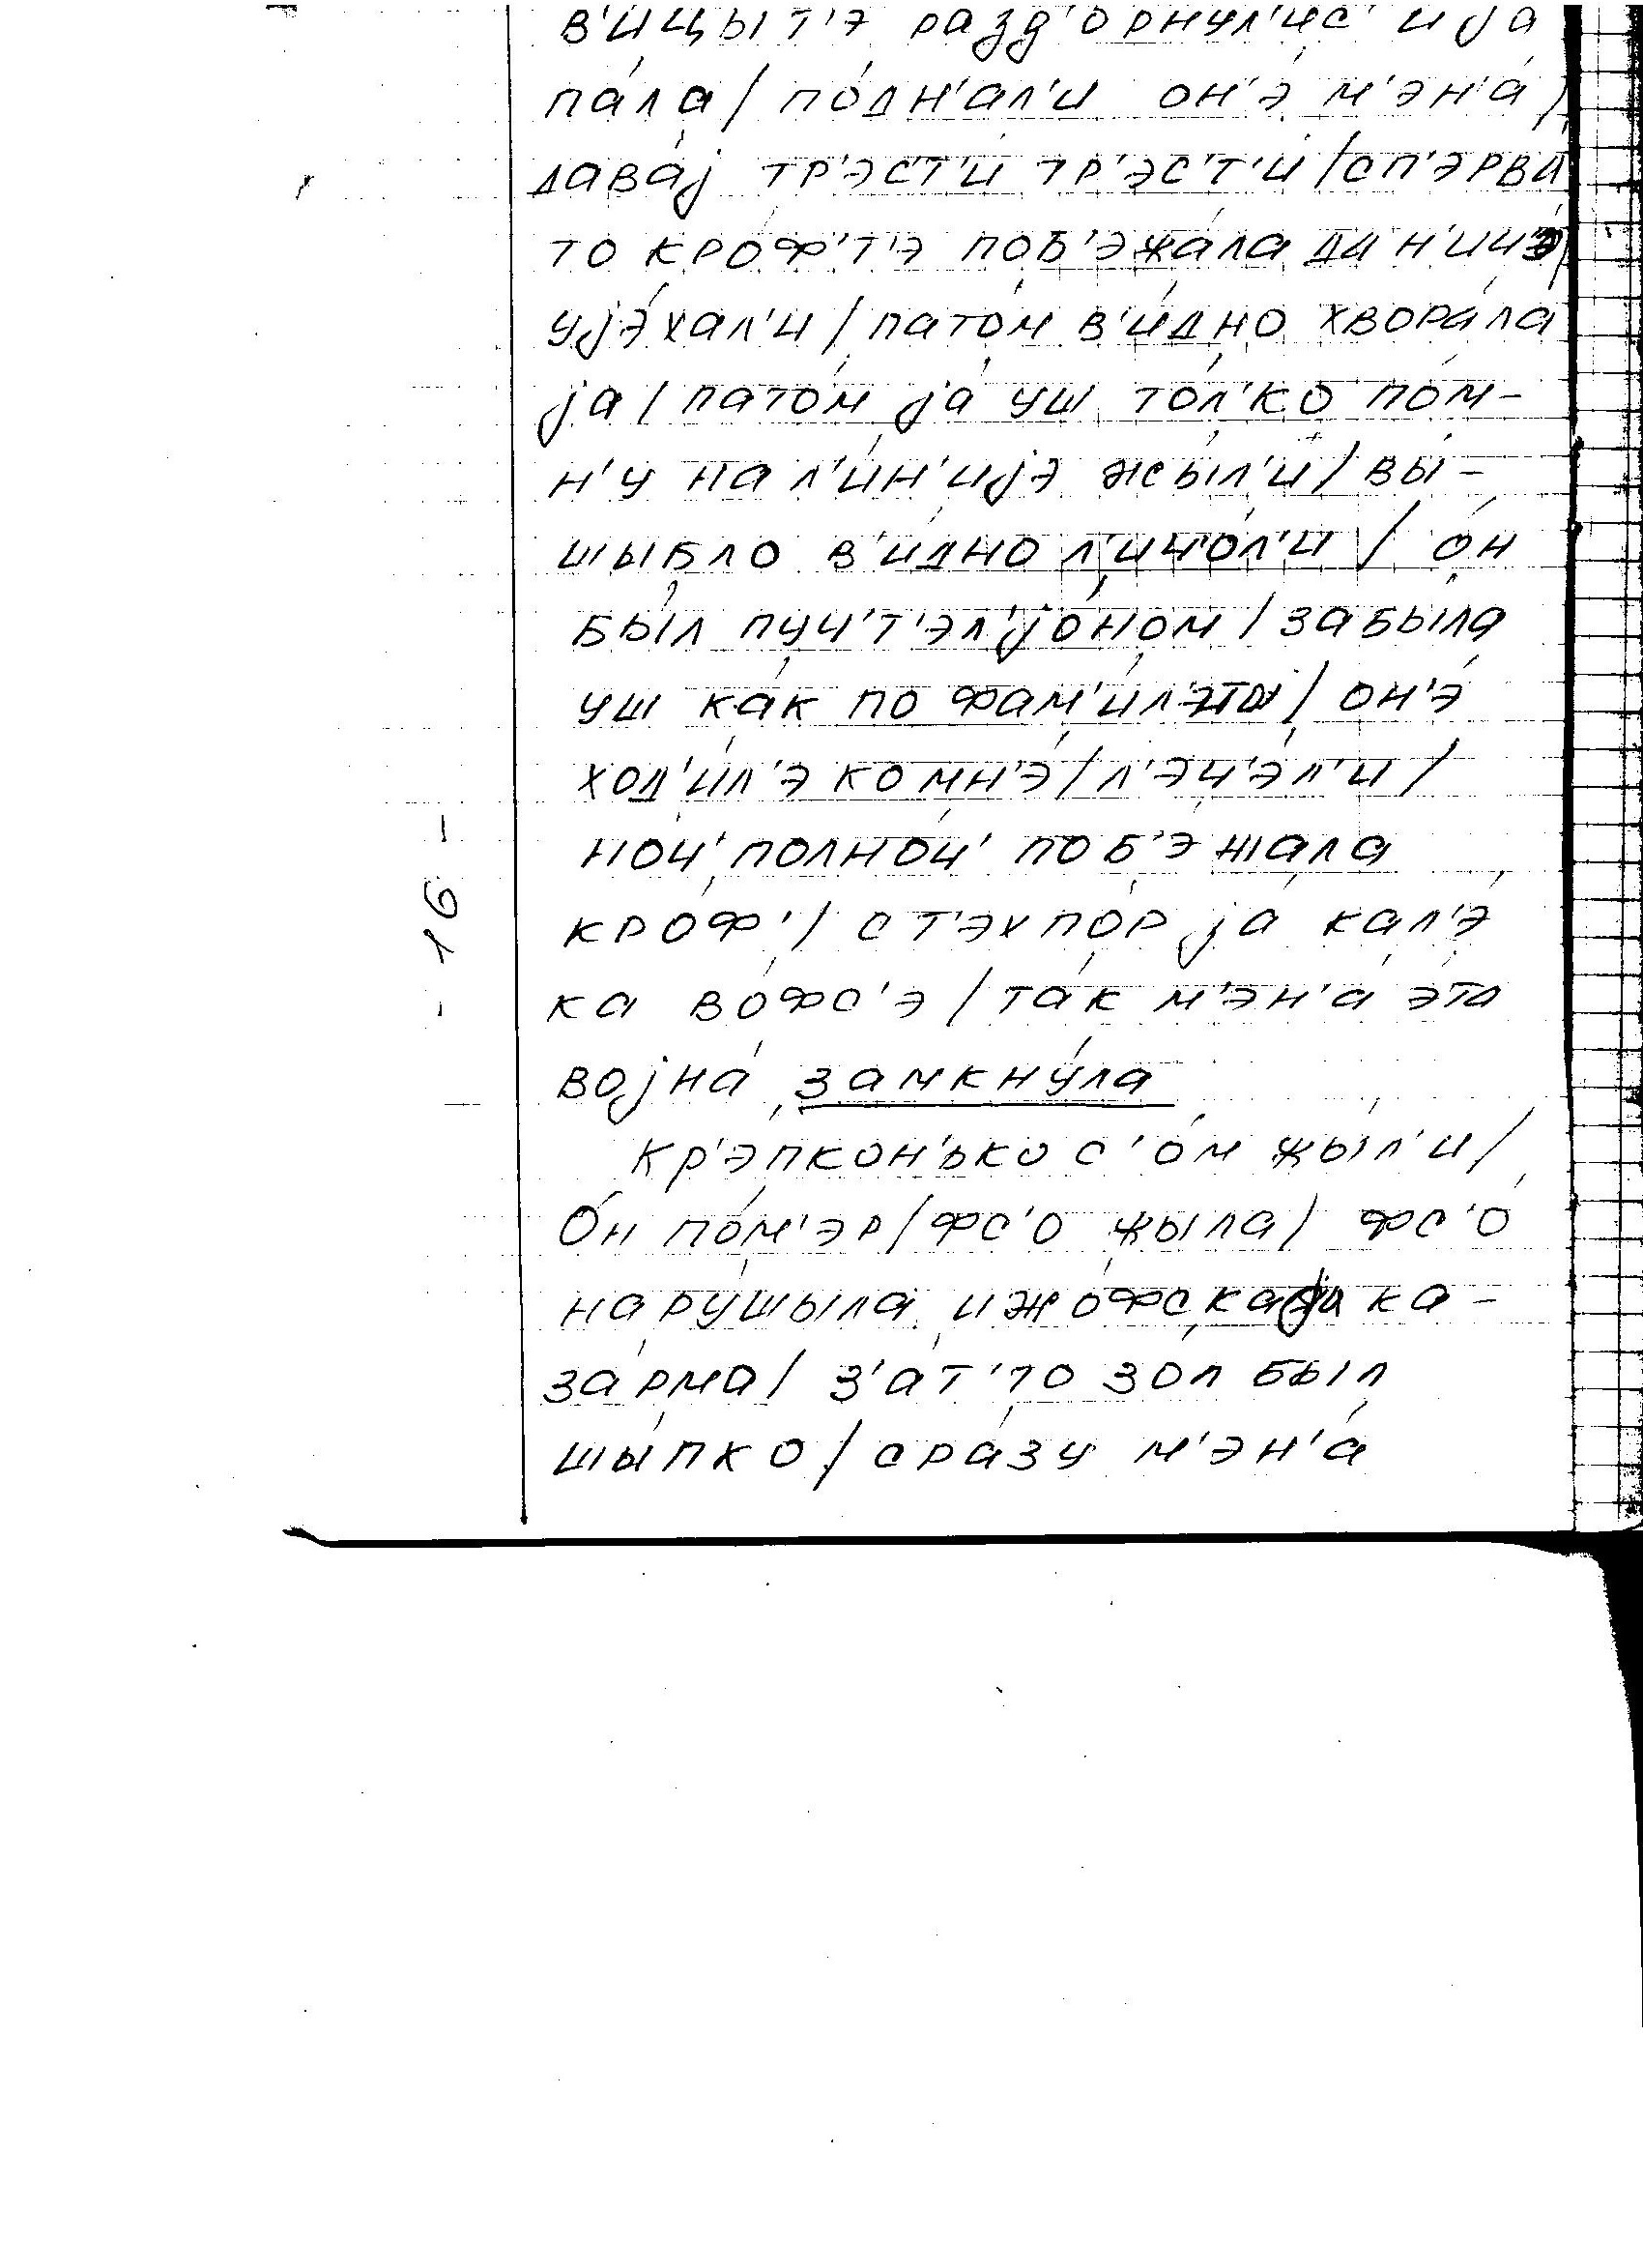 в'ицыт'э разд'орнул'ис' и jа
па́ла / по́дн'ал'и он'э́ м'эн'а́ /
дава́j тр'эс'т'и́ тр'эс'т'и́ / сп'эрва́
то кро́ф'т'э поб'эжа́ла да н'ич'э /
уjэ́хал'и / пато́м в'и́дно хвора́ла
jа / пато́м jа́ уш то́л'ко по́м-
н'у на л'и́н'иjэ жы́л'и / вы́-
шыбло в'и́дно л'и ч'о́л'и / о́н
бы́л пуч'т'эл'jо́ном / забы́ла
уш ка́к по фам'и́л' / он'э́
ход'и́л'э ко мн'э́ / л'эч'э́л'и /
ноч' полно́ч' поб'эжа́ла
кро́ф' / с т'эх по́р jа кал'э́
ка во́фс'э / та́к м'эн'а́ э́та
воjна́ замкну́ла
Кр'э́пкон'ько с'о́м жы́л'и /
О́н по́м'эр / фс'о жыла́ / фс'о́
нару́шыла ижо́фскаjа ка-
за́рма / з'а́т'то зол был
шы́пко / сра́зу м'эн'а́
- 16 -